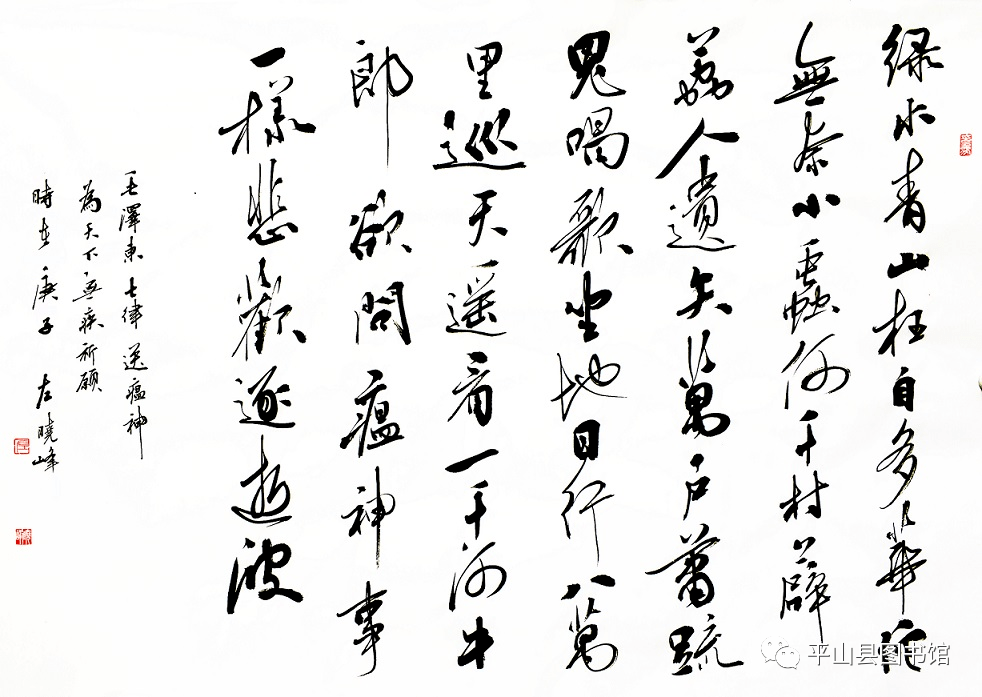 绿水青山枉自多華佗
無奈小蟲何千村薜
荔人遺矢萬户蕭疏
鬼唱歌坐地日行八萬
里巡天遥看一千河牛
郎欲問瘟神事
一樣悲歡逐逝波
毛澤東七律送瘟神
為天下無疾祈願
時在庚子左曉峰
平山县图书馆